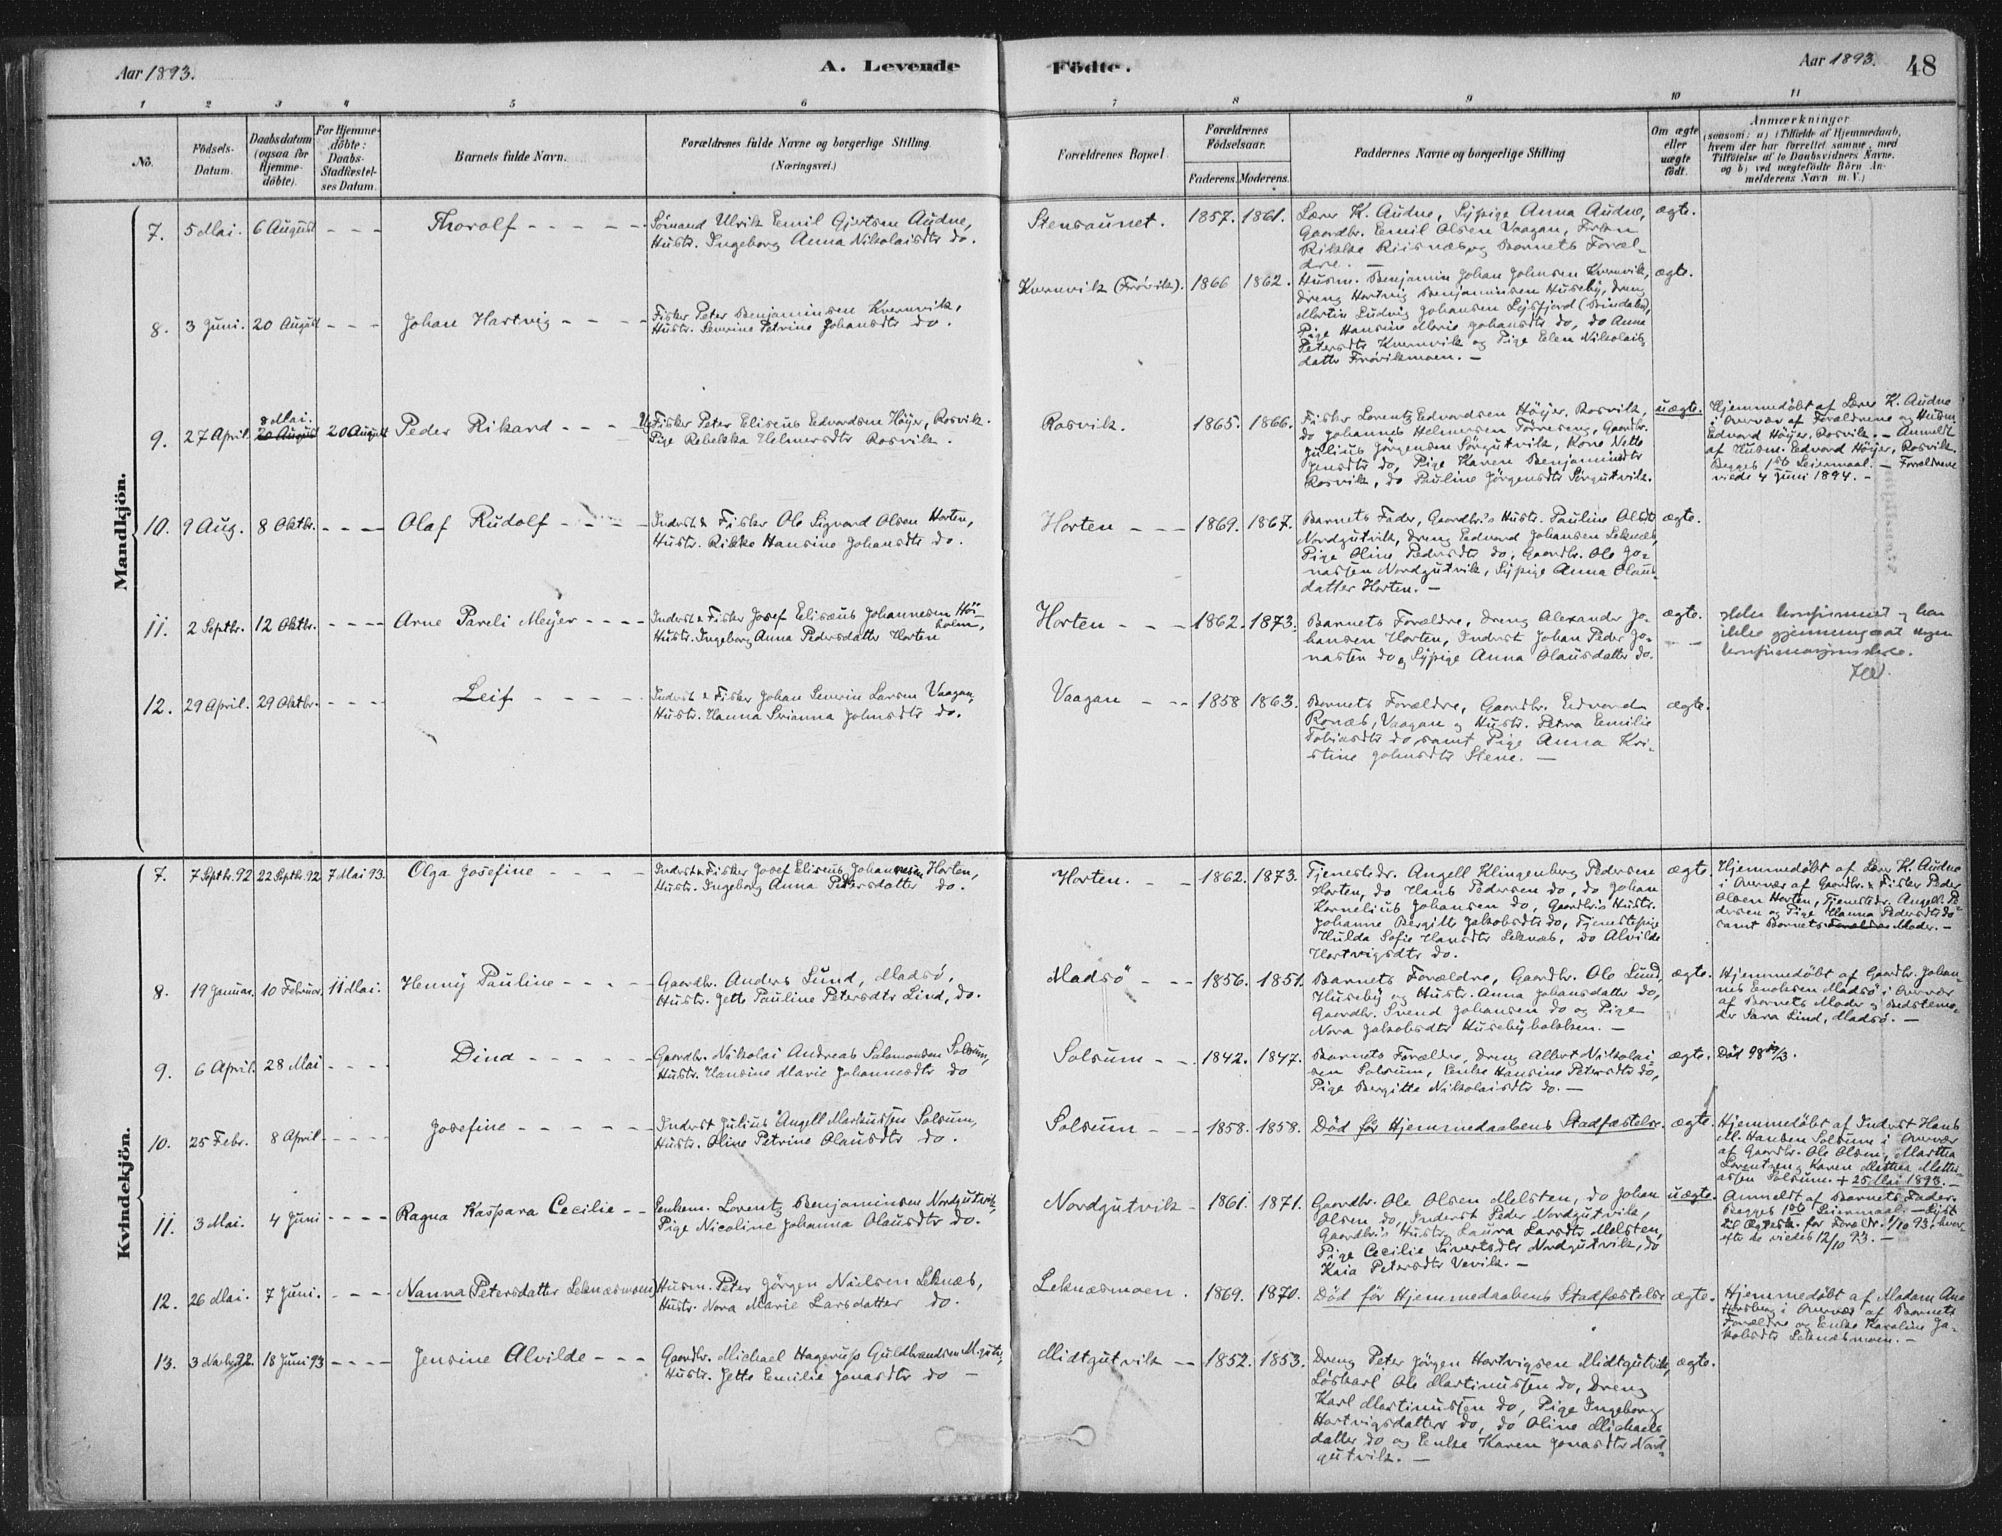 Aar 1893.
A. Levende
Födte.
Aar 1893.
48
1 2 3 4 5 6 7 8 9 10 11
No.
Födsels-
Datum.
Daabsdatum
(ogsaa for
Hjemme-
döbte).
For Hjemme-
döbte:
Daabs-
Stadfæstel-
ses Datum.
Barnets fulde Navn.
Forældrenes fulde Navne og borgerlige Stilling
(Næringsvei.)
Forældrenes Bopæl.
Forældrenes
Födselsaar.
Faderens. Moderens.
Faddernes Navne og borgerlige Stilling
Om ægte
eller
uægte
födt.
Anmærkninger
(saasom: a) i Tilfælde af Hjemmedaab,
hvem der har forrettet samme, med
Tilföielse af to Daabsvidners Navne,
og b) ved uægtefödte Börn An-
melderens Navn m. V.)
Mandkjön.
7. 5 Mai. 6 August - - - Thorolf - - - - -
Sømand Ulrik Emil Gjertsen Audne,
Hustr. Ingeborg Anna Nikolaisdtr do.
Stensaunet. 1857. 1861.
Lærer K. Audne, Sypige Anna Audne,
Gaardbr. Emil Olsen Vaagan, Frøken
Rikke Riisnæs og Barnets Foræl-
dre. —
ægte.
8. 3 Juni. 20 August - - - Johan Hartvig - - - -
Fisker Peter Benjaminsen Kvernvik,
Hustr. Severine Petrine Johansdtr do.
Kvernvik (Frøvik). 1866 1862.
Husm. Benjamin Johan Johnsen Kvernvik,
Dreng Hartvig Benjaminsen Huseby, Dreng
Martin Ludvig Johansen Lysfjord (Bindalen),
Pige Hansine Marie Johansdtr do, do Anna
Petersdtr Kvernvik og Pige Elen Nikolais-
datter Frøvikmoen. —
ægte.
9. 27 April 8 Mai. 20 August 20 August Peder Rikard - - -
Ug. Fisker Peter Eliseus Edvardsen Höyer, Rosvik.
Pige Rebekka Helmersdtr Rosvik.
Rosvik. 1865. 1866.
Fisker Lorentz Edvardsen Höyer, Rosvik,
do Johannes Helmersen Torreseng, Gaardbr.
Julius Jörgensen Sörgutvik, Kone Nette
Jensdtr do, Pige Karen Benjaminsdtr
Rosvik, do Pauline Jörgensdtr Sörgutvik.
uægte.
Hjemmedöbt af Lærer K. Audne
i Overvær af Forældrene og Husm.
Edvard Höyer, Rosvik. — Anmeldt
af Husm. Edvard Höyer, Rosvik.
Begges 1ste Leiermaal. — Forældrene
viede 4 Juni 1894. —
10. 9 Aug. 8 Oktbr. - - - Olaf Rudolf - - - -
Inderst & Fisker Ole Sigvard Olsen Horten,
Hustr. Rikke Hansine Johansdtr do.
Horten - - - 1869. 1867.
Barnets Fader, Gaardbr.'s Hustr. Pauline Olsdtr
Nordgutvik, Dreng Edvard Johansen Leknæs,
Pige Oline Pedersdtr do, Gaardbr. Ole Jo-
nassen Nordgutvik, Sypige Anna Olaus-
datter Horten. —
ægte.
11. 2 Septbr. 12 Oktbr. - - - - Arne Pareli Meyer - - - -
Inderst & Fisker Josef Elisæus Johannesen Höi-
holm,
Hustr. Ingeborg Anna Pedersdatter Horten
Horten - - - 1862. 1873.
Barnets Forældre, Dreng Alexander Jo-
hansen Horten, Inderst Johan Peder Jo-
nassen do og Sypige Anna Olausdatter do.
ægte.
ikke konfirmert og har
ikke gjennemgaat nogen
12. 29 April. 29 Oktbr. - - - - Leif - - - -
Inderst & Fisker Johan Severin Larsen Vaagan,
Hustr. Hanna Serianna Johnsdtr do.
Vaagan - - 1858 1863.
Barnets Forældre, Gaardbr. Edvard
Ronæs, Vaagan og Hustr. Petra Emilie
Tobiasdtr do, samt Pige Anna Kri-
stine Johnsdtr Stene. —
ægte.
Kvindekjön.
7. 7 Septbr. 92 22 Septbr. 92 7 Mai 93. Olga Josefine - - - -
Inderst & Fisker Josef Eliseus Johannesen Horten,
Hustr. Ingeborg Anna Petersdatter do.
Horten. - - 1862. 1873.
Tjenestedr. Angell Klingenberg Pedersen
Horten, do Hans Pedersen do, do Johan
Kornelius Johansen do, Gaardbr's Hustr.
Johanne Bergitte Jakobsdtr do, Tjenestepige
Hulda Sofie Hansdtr Leknæs, do Alvilde
Hartvigsdtr do.
ægte.
Hjemmedöbt af Lærer K. Audne
i Overvær af Gaardbr. & Fisker Peder
Olsen Horten, Tjenestedr. Angell Pe-
dersen og Pige Hanna Pedersdtr do
samt Barnets Forældre Moder. —
8. 19 Januar. 10 Februar. 11 Mai. Henny Pauline - - - -
Gaardbr. Anders Lund, Madsö,
Hustr. Jette Pauline Petersdtr Lind, do.
Madsö - - 1856. 1851.
Barnets Forældre, Gaardbr. Ole Lund,
Huseby og Hustr. Anna Johansdatter do,
Gaardbr. Svend Johansen do og Pige
Nora Jakobsdtr Husebybakken. —
ægte.
Hjemmedöbt af Gaardbr. Johan-
nes Enoksen Madsö i Overvær
af Barnets Moder og Bedstemo-
der Sara Lind, Madsö. —
9. 6 April. 28 Mai - - - - Dina - - - - -
Gaardbr. Nikolai Andreas Salamonsen Solsum,
Hustr. Hansine Marie Johannesdtr do
Solsum - - 1842. 1847.
Barnets Forældre, Dreng Albert Nikolai-
sen Solsum, Enke Hansine Petersdtr do,
Pige Bergitte Nikolaisdtr do. —
ægte.
10. 25 Febr. 8 April - - - - Josefine - - - - - -
Inderst Julius Angell Markussen Solsum,
Hustr. Oline Petrine Olausdtr do.
Solsum - - 1858. 1858.
Död før Hjemmedaabens Stadfæstelse
ægte.
Hjemmedöbt af Inderst Hans
M. Hansen Solsum i Overvær
af Gaardbr. Ole Olsen, Martha
Lorentzen og Karen Mathea Matte-
assen Solsum. + 25 Mai 1893. —
11. 3 Mai. 4 Juni - - - - Ragna Kaspara Cecilie - -
Enkem. Lorentz Benjaminsen Nordgutvik,
Pige Nicoline Johanna Olausdtr do.
Nordgutvik - 1861. 1871.
Gaardbr. Ole Olsen Melsten, do Johan
Olsen do, Inderst Peder Nordgutvik,
Gaardbr's Hustr. Laura Larsdtr Melsten,
Pige Cecilie Sivertsdtr Nordgutvik, do
Kaia Petersdtr Vevik. —
uægte.
Anmeldt af Barnets Fader.
Begges 1ste Leiermaal. — Lyst
til Ægtesk. for Foræld. 1/10 93, hvor-
efter de viedes 12/10 93. —
12. 26 Mai. 7 Juni. - - - - Nanna Petersdatter Leknæsmoen
Husm. Peter Jörgen Nielsen Leknæs,
Hustr. Nora Marie Larsdatter do.
Leknæsmoen. 1869. 1870.
Död før Hjemmedaabens Stadfæstelse
ægte.
Hjemmedöbt af Madam Ane
Forsberg i Overvær af Barnets
Forældre og Enke Karoline Ja-
kobsdtr Leknæsmoen. —
13. 3 Novbr. 92. 18 Juni 93 - - - - Jensine Alvilde - - -
Gaardbr. Michael Hagerup Guldbrandsen M.gutvik,
Hustr. Jette Emilie Jonasdtr do —
Midtgutvik - - 1852. 1853.
Dreng Peter Jörgen Hartvigsen Midtgutvik,
Löskarl Ole Martinussen do, Dreng
Karl Martinussen do, Pige Ingeborg
Hartvigsdatter do, do Oline Michaels-
datter do og Enke Karen Jonasdtr Nord-
gutvik. —
ægte.